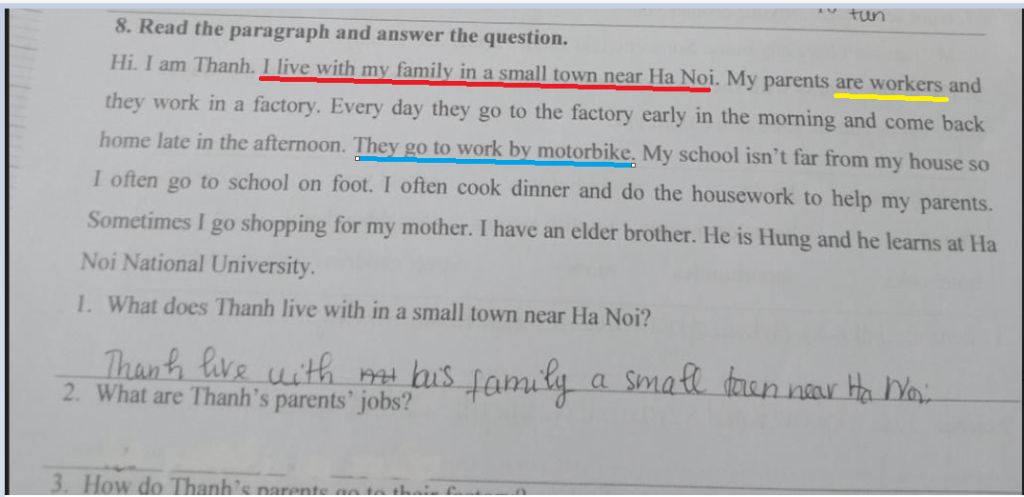 to fun
8. Read the paragraph and answer the question.
Hi. I am Thanh. I live with my family in a small town near Ha Noi. My parents are workers and
they work in a factory. Every day they go to the factory early in the morning and come back
home late in the afternoon. They go to work by motorbike. My school isn't far from my house so
I often go to school on foot. I often cook dinner and do the housework to help my parents.
Sometimes I go shopping for my mother. I have an elder brother. He is Hung and he learns at Ha
Noi National University.
1. What does Thanh live with in a small town near Ha Noi?
Thanh live with his family a small town near Ha Noi.
2. What are Thanh's parents' jobs?
3. How do Thanh's parents go to their factory?